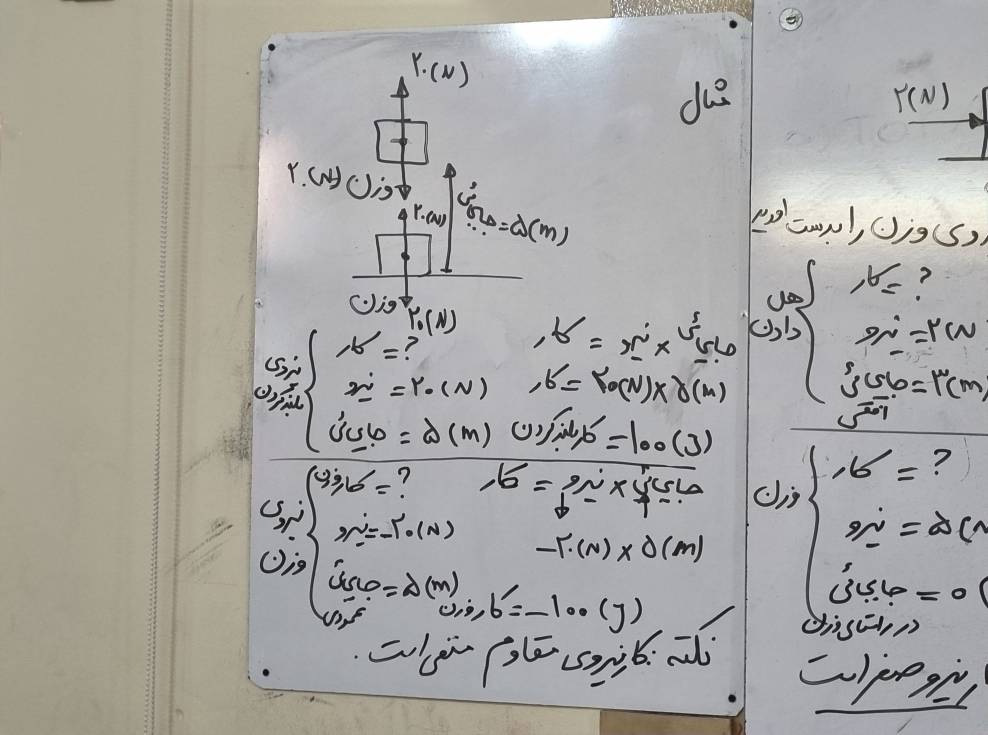 مثال
۲۰(N)
وزن ۲۰(N)
۲۰(N)
جابجائی = ۵(m)
وزن
۲۰(N)
نیروی بلند کردن
کار = ?
نیرو = ۲۰(N)
جابجائی = ۵(m)
کار = نیرو × جابجائی
کار = ۲۰(N) × ۵(m)
کار بلند کردن = ۱۰۰(J)
نیروی وزن
کار وزن = ?
نیرو = -۲۰(N)
جابجائی عمودی = ۵(m)
کار = نیرو × جابجائی
-۲۰(N) × ۵(m)
کار وزن = -۱۰۰(J)
نکته: کار نیروی مقاوم منفی است.
۲(N)
روی وزن را بدست آورید
هل دادن
کار = ?
نیرو = ۲(N
جابجائی افقی = ۳(m)
وزن
کار = ?
نیرو = ۵(N
جابجائی = ۰(
در راستای وزن
نیرو صفر است